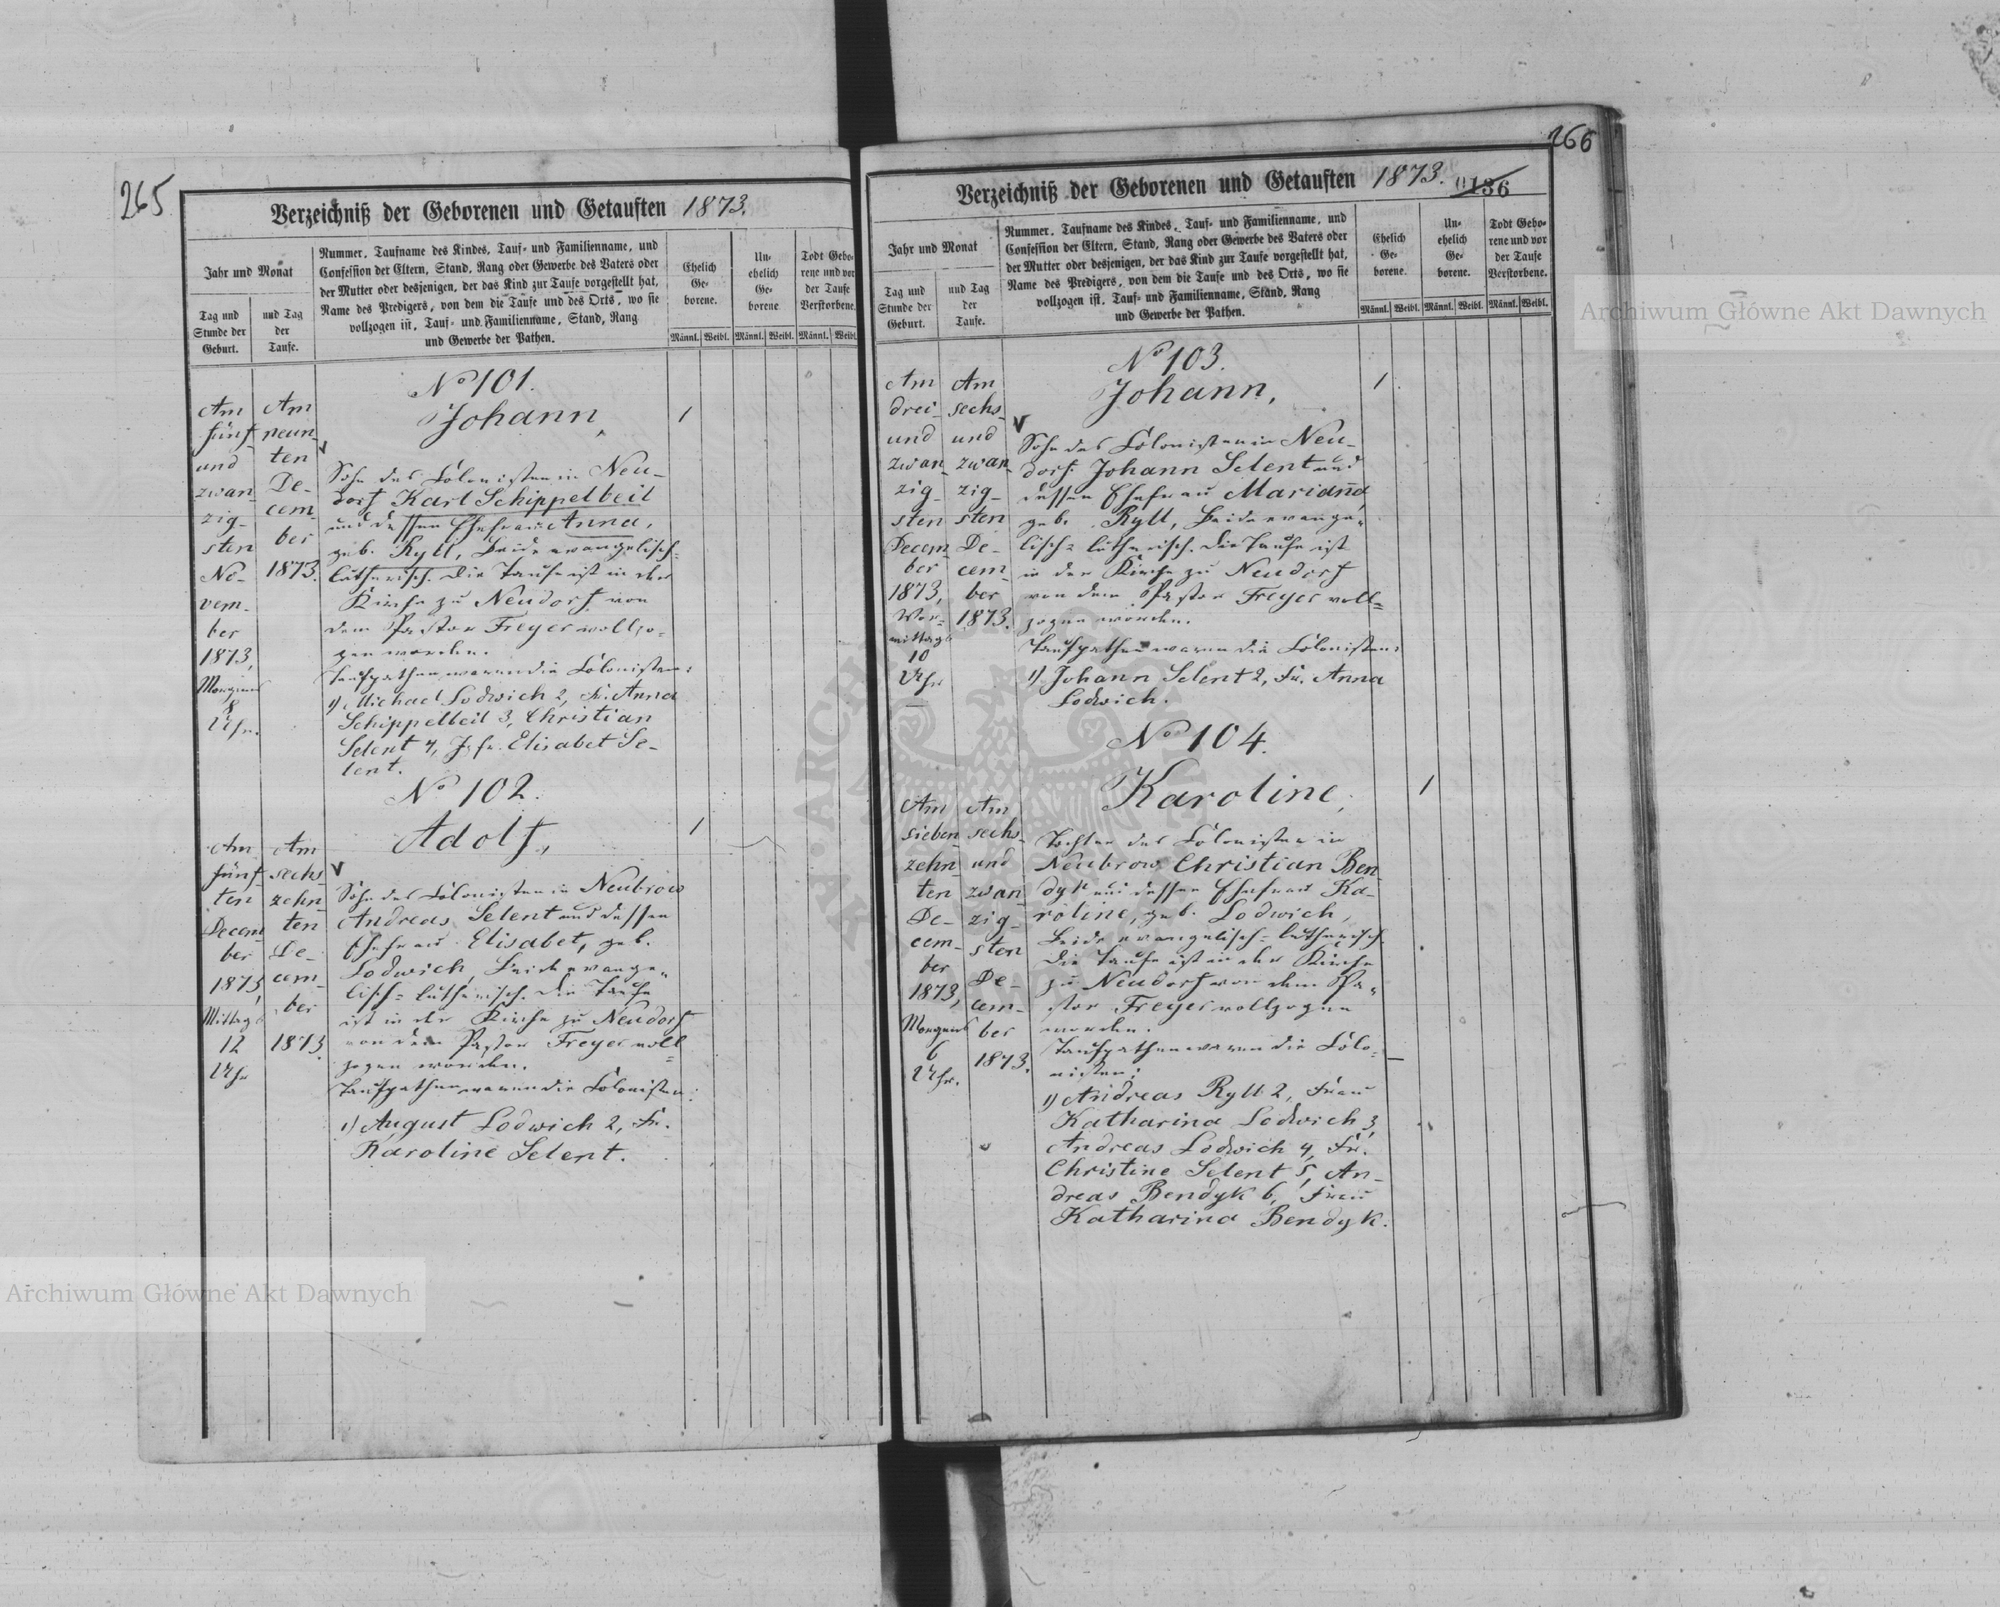 265
Verzeichniß der Geborenen und Getauften 1873.
Jahr und Monat
Tag und
Stunde der
Geburt.
und Tag
der
Taufe.
Nummer, Taufname des Kindes, Tauf- und Familienname, und
Confession der Eltern, Stand, Rang oder Gewerbe des Vaters oder
der Mutter oder desjenigen, der das Kind zur Taufe vorgestellt hat,
Name des Predigers, von dem die Taufe und des Orts, wo sie
vollzogen ist, Tauf- und Familienname, Stand, Rang
und Gewerbe der Pathen.
Ehelich
Ge-
borene.
Un-
ehelich
Ge-
borene
Todt Gebo-
rene und vor
der Taufe
Verstorbene.
Männl. Weibl. Männl. Weibl. Männl. Weibl.
Am
fünf-
und
zwan-
zig-
sten
No-
vem-
ber
1873,
Morgens
8
Uhr.
Am
neun-
ten
De-
cem-
ber
1873.
No 101.
Johann,
1
Sohn des Colonisten in Neu-
dorf Karl Schippelbeil
und dessen Ehefrau Anna,
geb. Ryll, Beide evangelisch-
lutherisch. Die Taufe ist in der
Kirche zu Neudorf von
dem Pastor Freyer vollzo-
gen worden.
Taufpathen waren die Colonisten:
1) Michael Lodwich 2, Fr. Anna
Schippelbeil 3, Christian
Selent 4, Jgfr. Elisabet Se-
lent.
Am
fünf-
ten
Decem-
ber
1873,
Mittags
12
Uhr
Am
sechs-
zehn-
ten
De-
cem-
ber
1873.
No 102.
Adolf,
1
Sohn des Colonisten in Neubrow
Andreas Selent und dessen
Ehefrau Elisabet, geb.
Lodwich, Beide evange-
lisch-lutherisch. Die Taufe
ist in der Kirche zu Neudorf
von dem Pastor Freyer voll-
zogen worden.
Taufpathen waren die Colonisten:
1) August Lodwich 2, Fr.
Karoline Selent.
266
Verzeichniß der Geborenen und Getauften 1873.
136
Jahr und Monat
Tag und
Stunde der
Geburt.
und Tag
der
Taufe.
Nummer, Taufname des Kindes, Tauf- und Familienname, und
Confession der Eltern, Stand, Rang oder Gewerbe des Vaters oder
der Mutter oder desjenigen, der das Kind zur Taufe vorgestellt hat,
Name des Predigers, von dem die Taufe und des Orts, wo sie
vollzogen ist, Tauf- und Familienname, Stand, Rang
und Gewerbe der Pathen.
Ehelich
Ge-
borene.
Un-
ehelich
Ge-
borene.
Todt Gebo-
rene und vor
der Taufe
Verstorbene.
Männl. Weibl. Männl. Weibl. Männl. Weibl.
Am
drei-
und
zwan-
zig-
sten
Decem-
ber
1873,
Vor-
mittags
10
Uhr
Am
sechs-
und
zwan-
zig-
sten
De-
cem-
ber
1873.
No 103.
Johann,
1
Sohn des Colonisten in Neu-
dorf Johann Selent und
dessen Ehefrau Marianna,
geb. Ryll, Beide evange-
lisch-lutherisch. Die Taufe ist
in der Kirche zu Neudorf
von dem Pastor Freyer voll-
zogen worden.
Taufpathen waren die Colonisten:
1) Johann Selent 2, Fr. Anna
Lodwich.
Am
sieben-
zehn-
ten
De-
cem-
ber
1873,
Morgens
6
Uhr.
Am
sechs-
und
zwan-
zig-
sten
De-
cem-
ber
1873.
No 104.
Karoline,
1
Tochter des Colonisten in
Neubrow Christian Ben-
dyk und dessen Ehefrau Ka-
roline, geb. Lodwich,
Beide evangelisch-lutherisch.
Die Taufe ist in der Kirche
zu Neudorf von dem Pa-
stor Freyer vollzogen
worden.
Taufpathen waren die Colo-
nisten:
1) Andreas Ryll 2, Frau
Katharina Lodwich 3,
Andreas Lodwich 4, Fr.
Christine Selent 5, An-
dreas Bendyk 6, Frau
Katharina Bendyk.
Archiwum Główne Akt Dawnych
Archiwum Główne Akt Dawnych